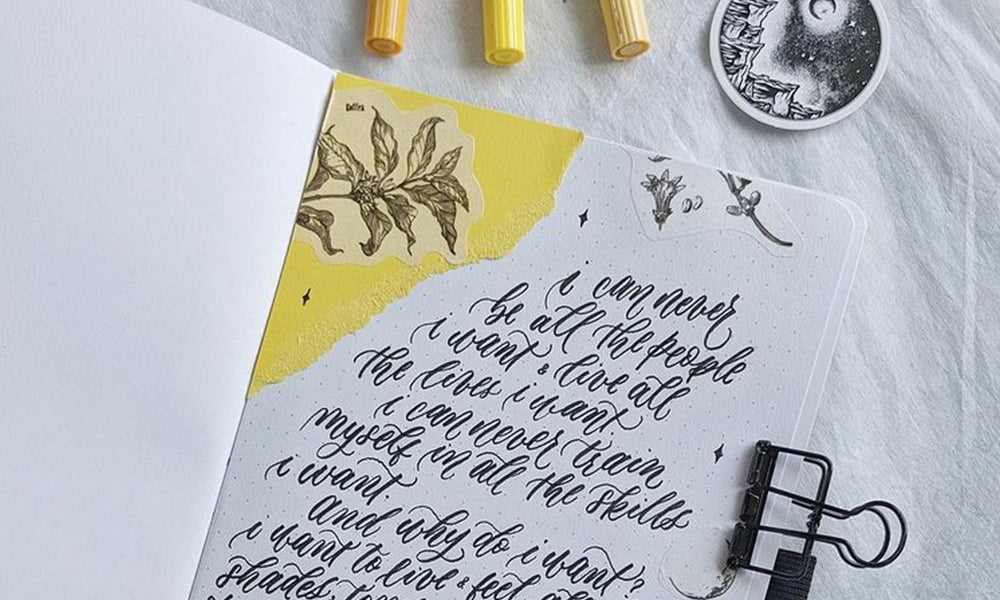 Coffea
i can never
be all the people
i want & live all
the lives i want
i can never train
myself in all the skills
i want.
and why do i want?
i want to live & feel all
shades,